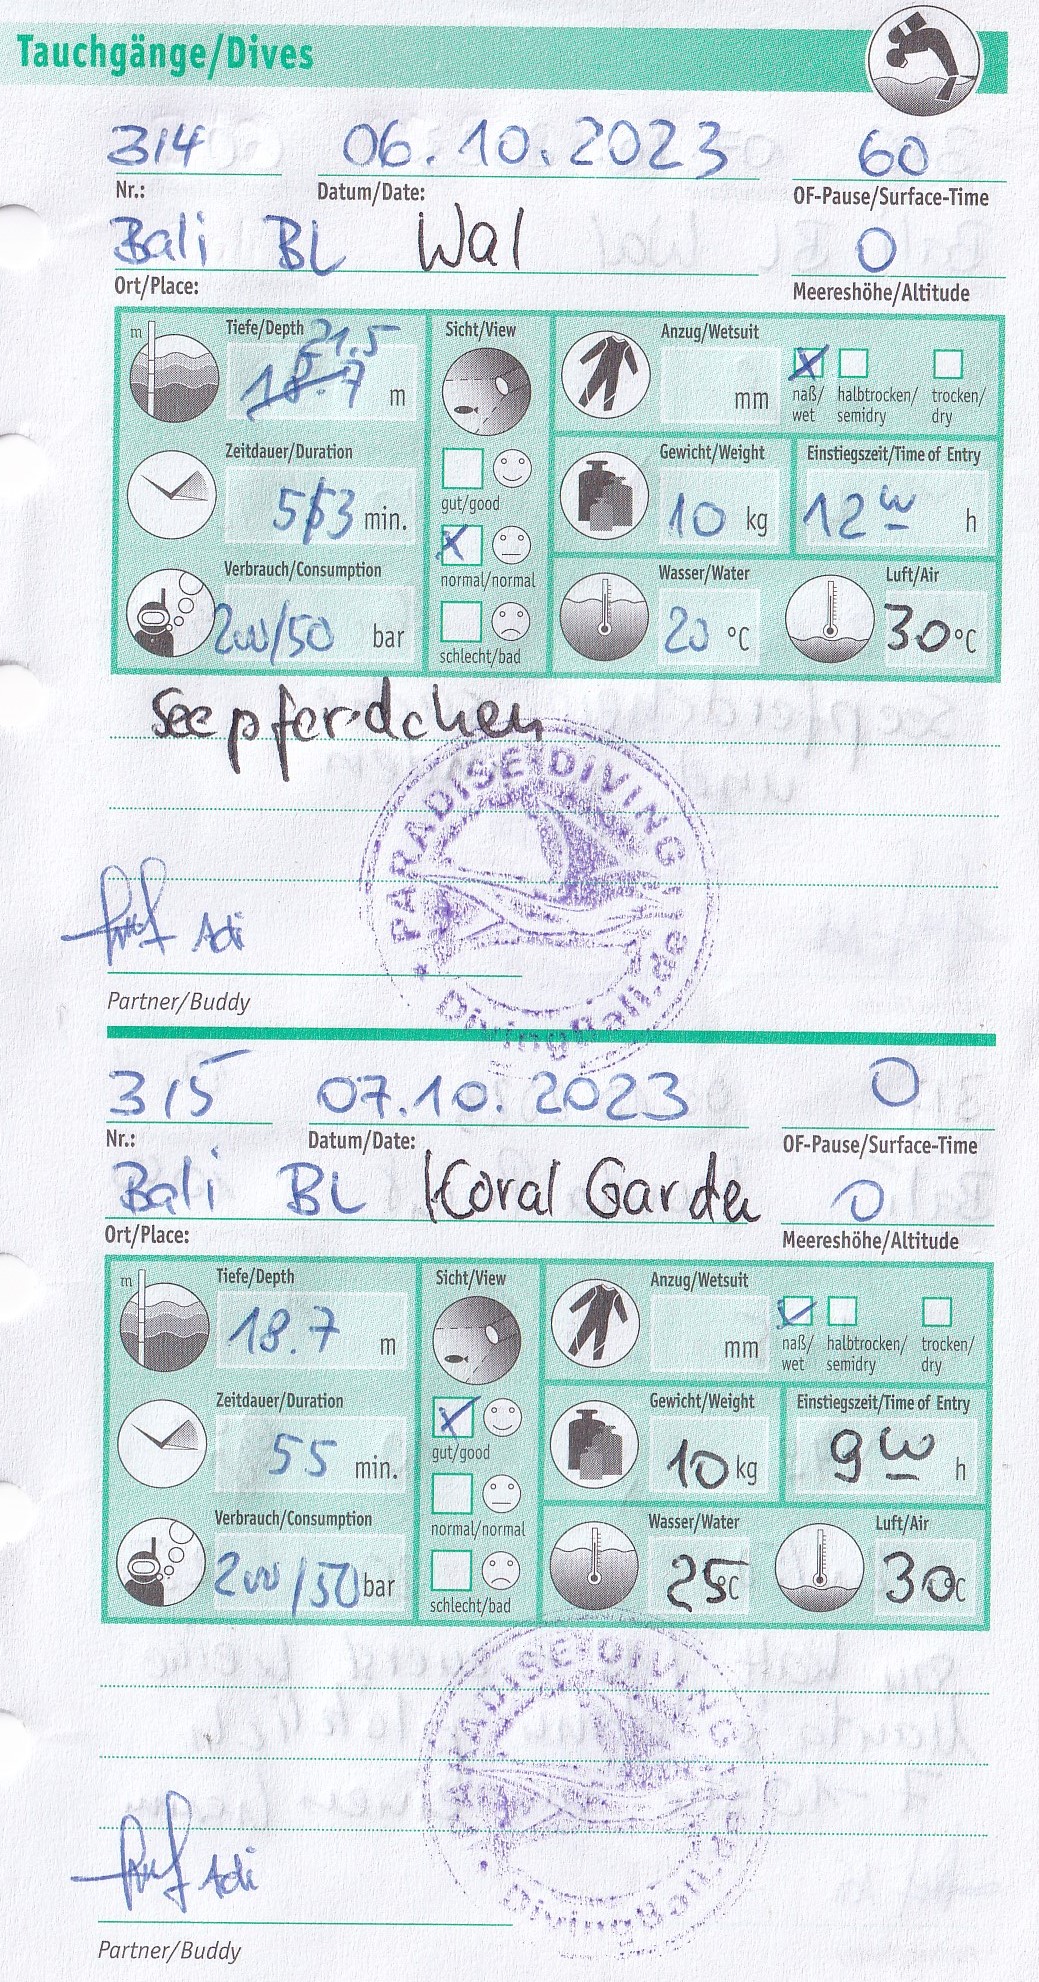 Tauchgänge/Dives
314 06.10.2023 60
Nr.: Datum/Date: OF-Pause/Surface-Time
Bali BL Wal 0
Ort/Place: Meereshöhe/Altitude
m Tiefe/Depth 21.5 Sicht/View Anzug/Wetsuit
18.7 m mm naß/ halbtrocken/ trocken/
wet semidry dry
Zeitdauer/Duration Gewicht/Weight Einstiegszeit/Time of Entry
53 min. gut/good 10 kg 12 00 h
normal/normal
Verbrauch/Consumption Wasser/Water Luft/Air
200/50 bar 20 °C 30 °C
schlecht/bad
Seepferdchen
PARADISE DIVING
DivingBali.de
Adi
Partner/Buddy
315 07.10.2023 0
Nr.: Datum/Date: OF-Pause/Surface-Time
Bali BL Koral Garden 0
Ort/Place: Meereshöhe/Altitude
m Tiefe/Depth Sicht/View Anzug/Wetsuit
18.7 m mm naß/ halbtrocken/ trocken/
wet semidry dry
Zeitdauer/Duration Gewicht/Weight Einstiegszeit/Time of Entry
55 min. gut/good 10 kg 9 00 h
Verbrauch/Consumption normal/normal Wasser/Water Luft/Air
200/50 bar 25 °C 30 °C
schlecht/bad
PARADISE DIVING
DivingBali.de
Adi
Partner/Buddy